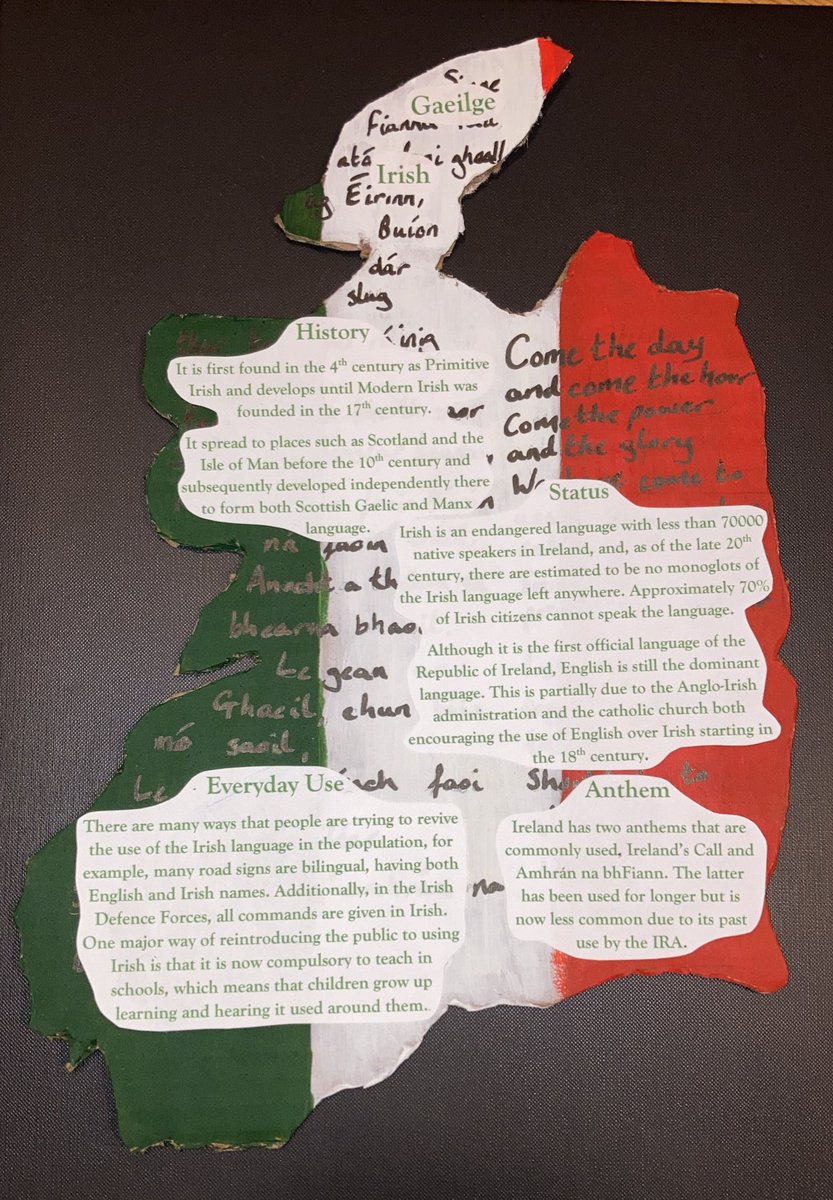 Gaeilge
Fianna
atá faoi gheall
Irish
ag Éirinn,
Buíon
dár
slug
History
It is first found in the 4th century as Primitive
Irish and develops until Modern Irish was
founded in the 17th century.
It spread to places such as Scotland and the
Isle of Man before the 10th century and
subsequently developed independently there
to form both Scottish Gaelic and Manx
language.
Come the day
and come the hour
Come the power
and the glory
come to
Status
Irish is an endangered language with less than 70000
native speakers in Ireland, and, as of the late 20th
century, there are estimated to be no monoglots of
the Irish language left anywhere. Approximately 70%
of Irish citizens cannot speak the language.
Although it is the first official language of the
Republic of Ireland, English is still the dominant
language. This is partially due to the Anglo-Irish
administration and the catholic church both
encouraging the use of English over Irish starting in
the 18th century.
ná
a
bhearna
Le gean
Ghaeil, chun
nó saoil,
Le faoi to
Everyday Use
There are many ways that people are trying to revive
the use of the Irish language in the population, for
example, many road signs are bilingual, having both
English and Irish names. Additionally, in the Irish
Defence Forces, all commands are given in Irish.
One major way of reintroducing the public to using
Irish is that it is now compulsory to teach in
schools, which means that children grow up
learning and hearing it used around them.
Anthem
Ireland has two anthems that are
commonly used, Ireland's Call and
Amhrán na bhFiann. The latter
has been used for longer but is
now less common due to its past
use by the IRA.